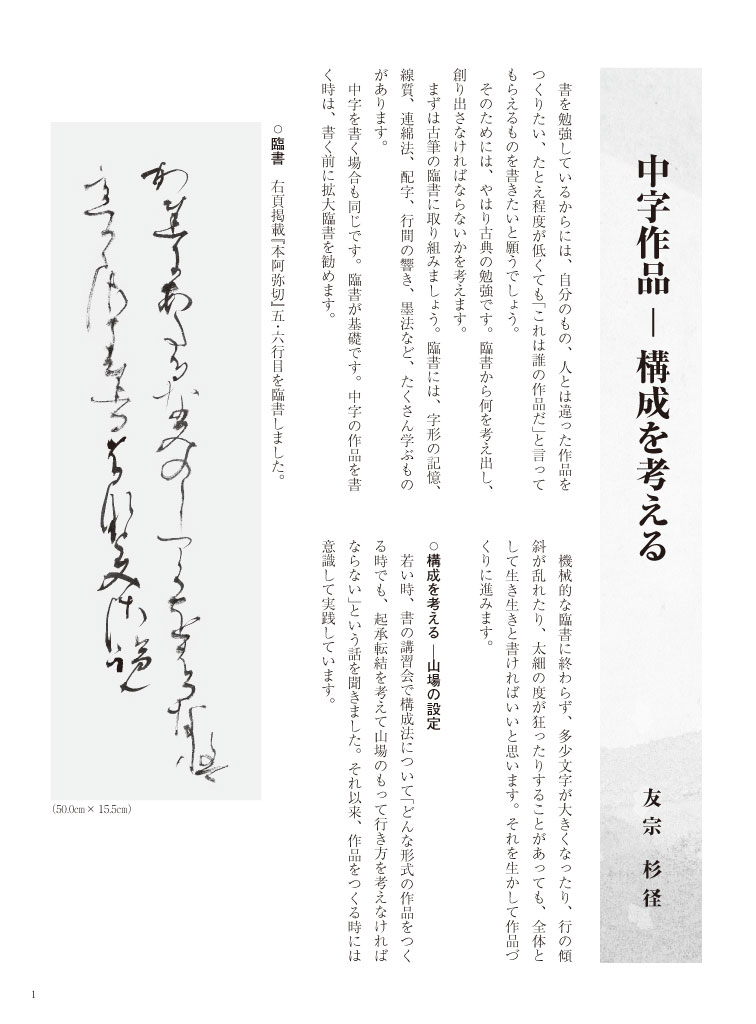 中字作品 ― 構成を考える
友宗 杉径
書を勉強しているからには、自分のもの、人とは違った作品を
つくりたい、たとえ程度が低くても「これは誰の作品だ」と言って
もらえるものを書きたいと願うでしょう。
そのためには、やはり古典の勉強です。臨書から何を考え出し、
創り出さなければならないかを考えます。
まずは古筆の臨書に取り組みましょう。臨書には、字形の記憶、
線質、連綿法、配字、行間の響き、墨法など、たくさん学ぶもの
があります。
中字を書く場合も同じです。臨書が基礎です。中字の作品を書
く時は、書く前に拡大臨書を勧めます。
○臨書 右頁掲載『本阿弥切』五・六行目を臨書しました。
(50.0cm × 15.5cm)
機械的な臨書に終わらず、多少文字が大きくなったり、行の傾
斜が乱れたり、太細の度が狂ったりすることがあっても、全体と
して生き生きと書ければいいと思います。それを生かして作品づ
くりに進みます。
○構成を考える ―山場の設定
若い時、書の講習会で構成法について「どんな形式の作品をつく
る時でも、起承転結を考えて山場のもって行き方を考えなければ
ならない」という話を聞きました。それ以来、作品をつくる時には
意識して実践しています。
1